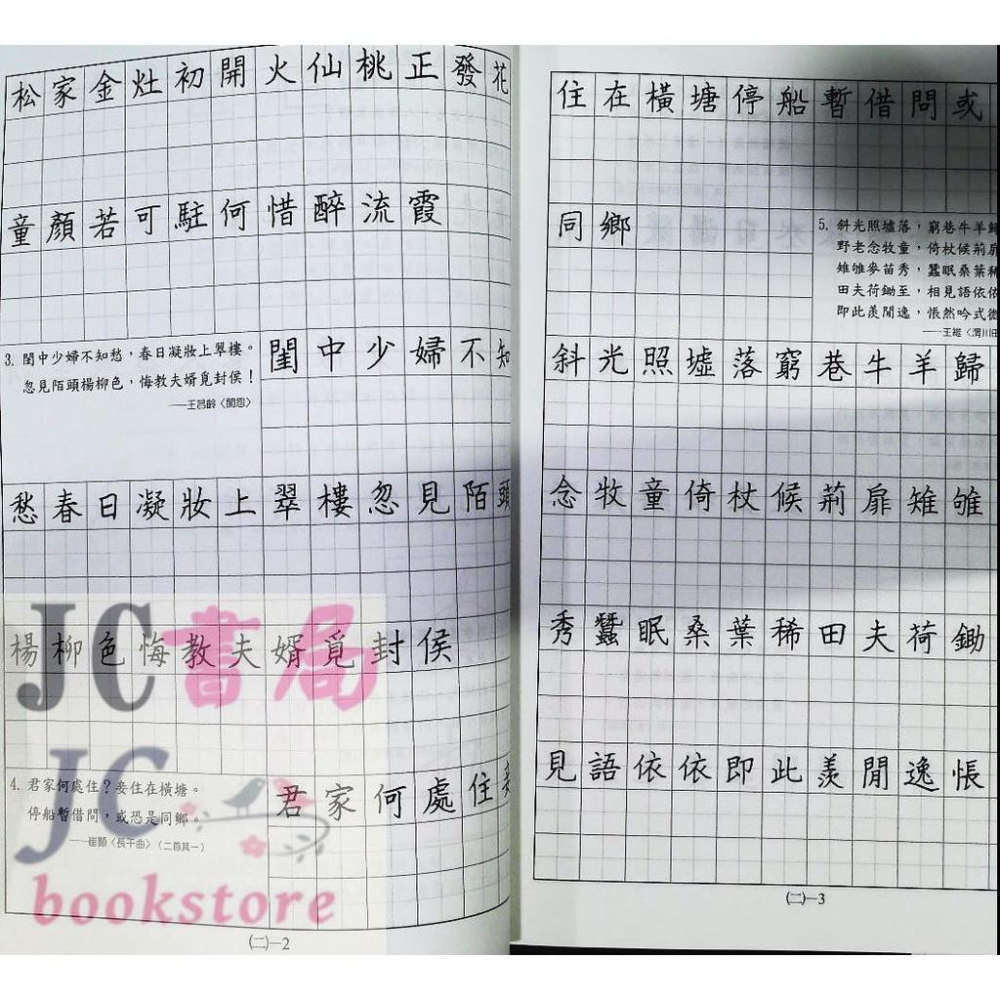 松家金灶初開火仙桃正發花
童顏若可駐何惜醉流霞
3. 閨中少婦不知愁，春日凝妝上翠樓。
忽見陌頭楊柳色，悔教夫婿覓封侯！
——王昌齡〈閨怨〉
閨中少婦不知
愁春日凝妝上翠樓忽見陌頭
楊柳色悔教夫婿覓封侯
4. 君家何處住？妾住在橫塘。
停船暫借問，或恐是同鄉。
——崔顥〈長干曲〉（二首其一）
君家何處住妾
(二)—2
住在橫塘停船暫借問或
同鄉
5. 斜光照墟落，窮巷牛羊歸
野老念牧童，倚杖候荊扉
雉雊麥苗秀，蠶眠桑葉稀
田夫荷鋤至，相見語依依
即此羨閒逸，悵然吟式微
——王維〈渭川田
斜光照墟落窮巷牛羊歸
念牧童倚杖候荊扉雉雊
秀蠶眠桑葉稀田夫荷鋤
見語依依即此羨閒逸悵
(二)—3
JC書局
JC
bookstore